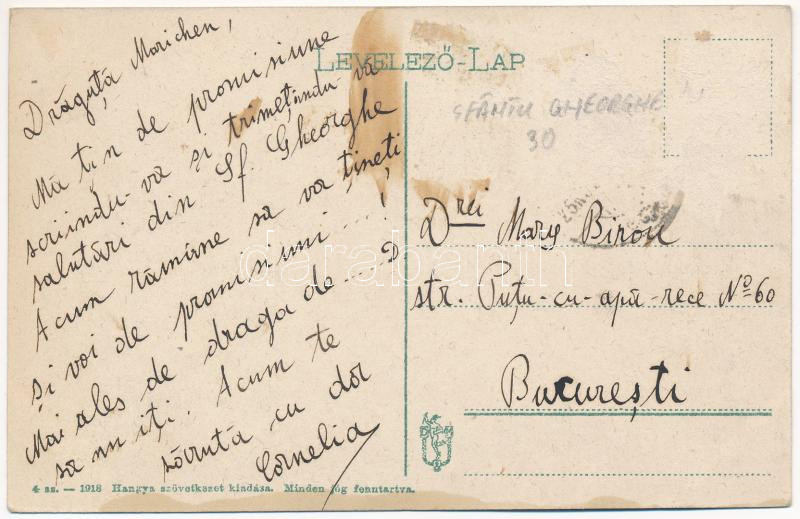 LEVELEZŐ-LAP
Drăguță Marichen,
Mă țin de promisiune
scriindu-vă și trimețindu-vă
salutări din Sf. Gheorghe
Acum rămâne să va țineti
și voi de promisiuni...!
Mai ales de draga de ... D
sa nu iți. Acum te
săruta cu dor
Cornelia
SFÂNTU GHEORGHE
30
Drei Mary Birou
str. Puțu-cu-apă-rece No 60
București
4 sz. — 1918 Hangya szövetkezet kiadása. Minden jog fenntartva.
darabanth.com